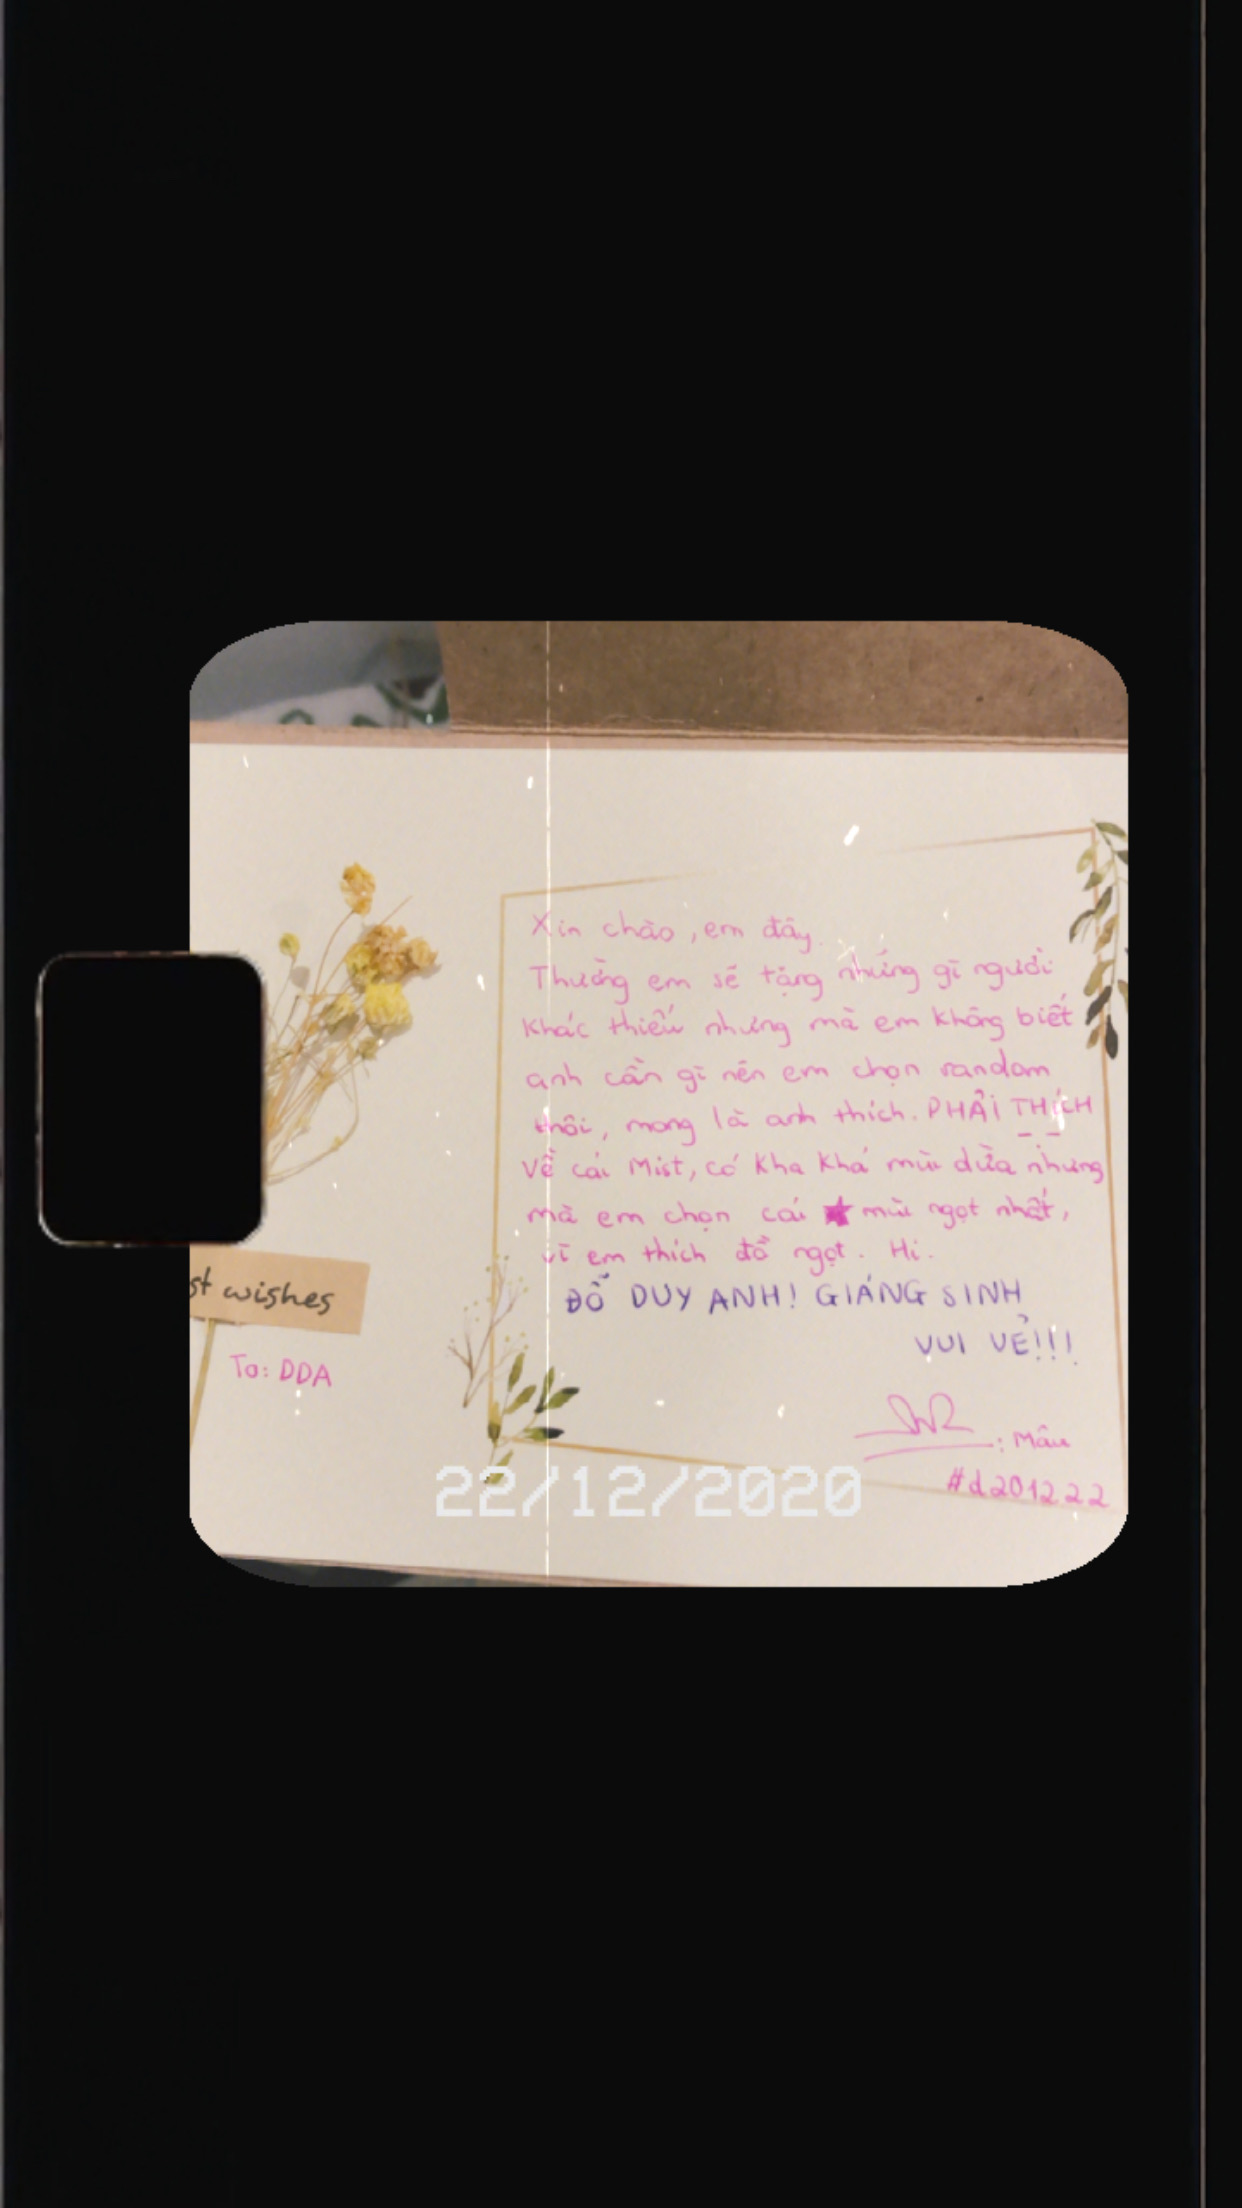 Xin chào, em đây.
Thường em sẽ tặng những gì người
khác thiếu nhưng mà em không biết
anh cần gì nên em chọn random
thôi, mong là anh thích. PHẢI THÍCH
Về cái Mist, có kha khá mùi dừa nhưng
mà em chọn cái mùi ngọt nhất,
vì em thích đồ ngọt. Hi.
ĐỖ DUY ANH! GIÁNG SINH
VUI VẺ!!!
: Mâu
#d201222
st wishes
To: DDA
22/12/2020